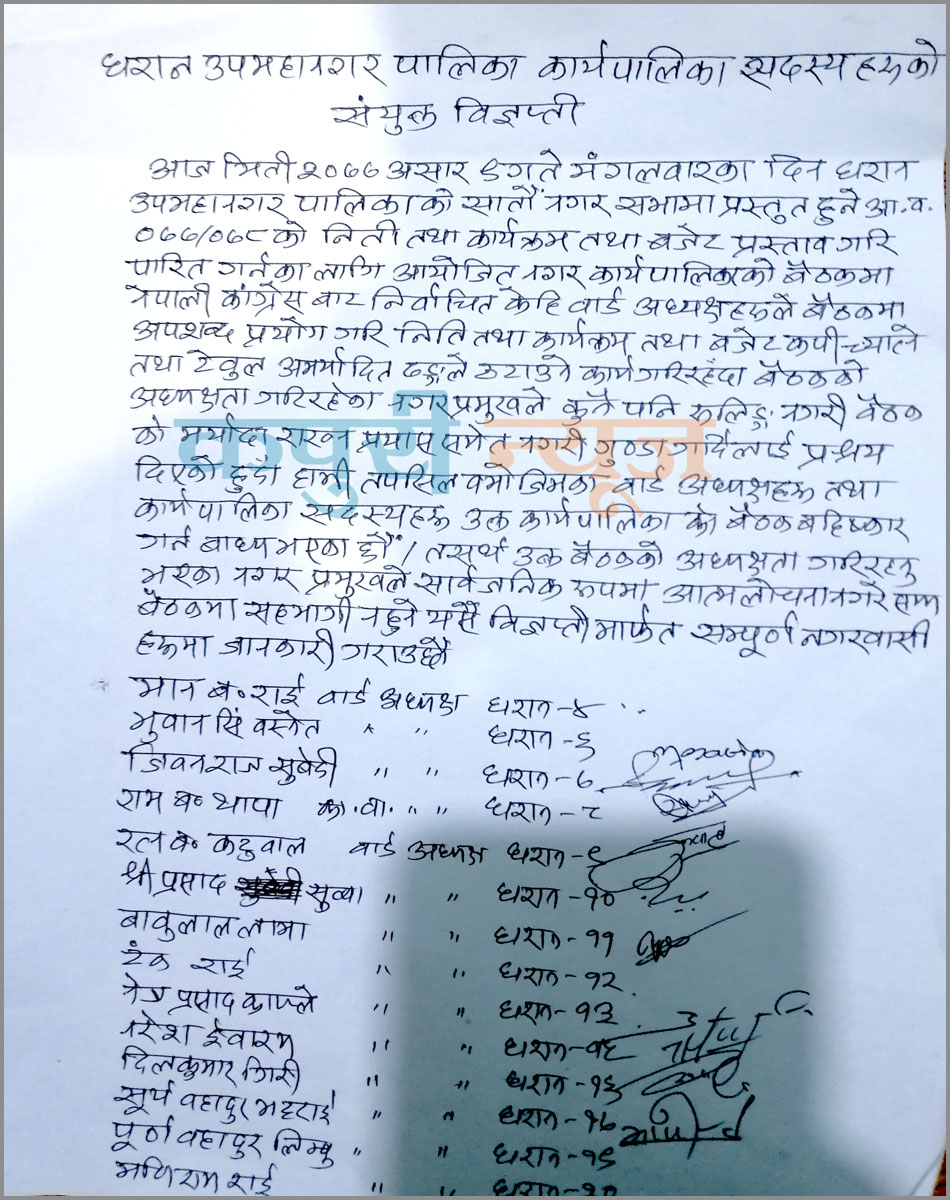 धरान उपमहानगर पालिका कार्यपालिका सदस्य हरूको
संयुक्त विज्ञप्ती
आज मिती २०७७ असार ९ गते मंगलवारका दिन धरान
उपमहानगर पालिका को सातौं नगर सभामा प्रस्तुत हुने आ.व.
०७७/०७८ को निती तथा कार्यक्रम तथा बजेट प्रस्ताव गरि
पारित गर्नका लागि आयोजित नगर कार्यपालिकाको बैठकमा
नेपाली कांग्रेस बाट निर्वाचित केहि वार्ड अध्यक्षहरूले बैठकमा
अपशब्द प्रयोग गरि निति तथा कार्यक्रम तथा बजेट कपी च्यात्ने
तथा टेवुल अमर्यादित ढङ्गले ठटाउने कार्य गरिरहँदा बैठकको
अध्यक्षता गरिरहेका नगर प्रमुखले कुनै पनि रूलिङ नगरी बैठक
को मर्यादा राख्न प्रयास समेत नगरी गुण्डा गर्दिलाई प्रश्रय
दिएको हुदा हामी तपसिल वमोजिमका वार्ड अध्यक्षहरू तथा
कार्यपालिका सदस्यहरू उक्त कार्यपालिका को बैठक बहिष्कार
गर्न बाध्य भएका छौं / तसर्थ उक्त बैठकको अध्यक्षता गरिरहनु
भएका नगर प्रमुखले सार्वजनिक रूपमा आत्मलोचना नगरे सम्म
बैठकमा सहभागी नहुने यसै विज्ञप्ती मार्फत सम्पूर्ण नगरवासी
हरूमा जानकारी गराउछौं
मान ब॰ राई वार्ड अध्यक्ष धरान-४
भुवान सिं वस्नेत " " धरान-६
जिवनराज सुबेदी " " धरान-७
राम ब॰ थापा का.वा. " " धरान-८
रत्न ब॰ कटुवाल वार्ड अध्यक्ष धरान-९
श्री प्रसाद सुव्वा " " धरान-१०
बाबुलाल लामा " " धरान-११
टंक राई " " धरान-१२
प्रसाद काफ्ले " " धरान-१३
नरेश ईवारम " " धरान-
दिलकुमार गिरी " " धरान-१६
सूर्य वहादुर भट्टराई " " धरान-१७
पूर्ण वहादुर लिम्बु " " धरान-१९
मणिराम राई " " धरान-२०
कपुरी न्यूज